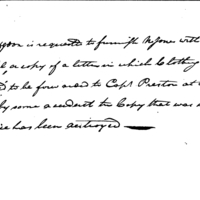 is requested to furnish Mr Jones with
a copy of a letter in which Clothing
to be forwarded to Capt Preston at
by some accident the Copy that was
has been destroyed